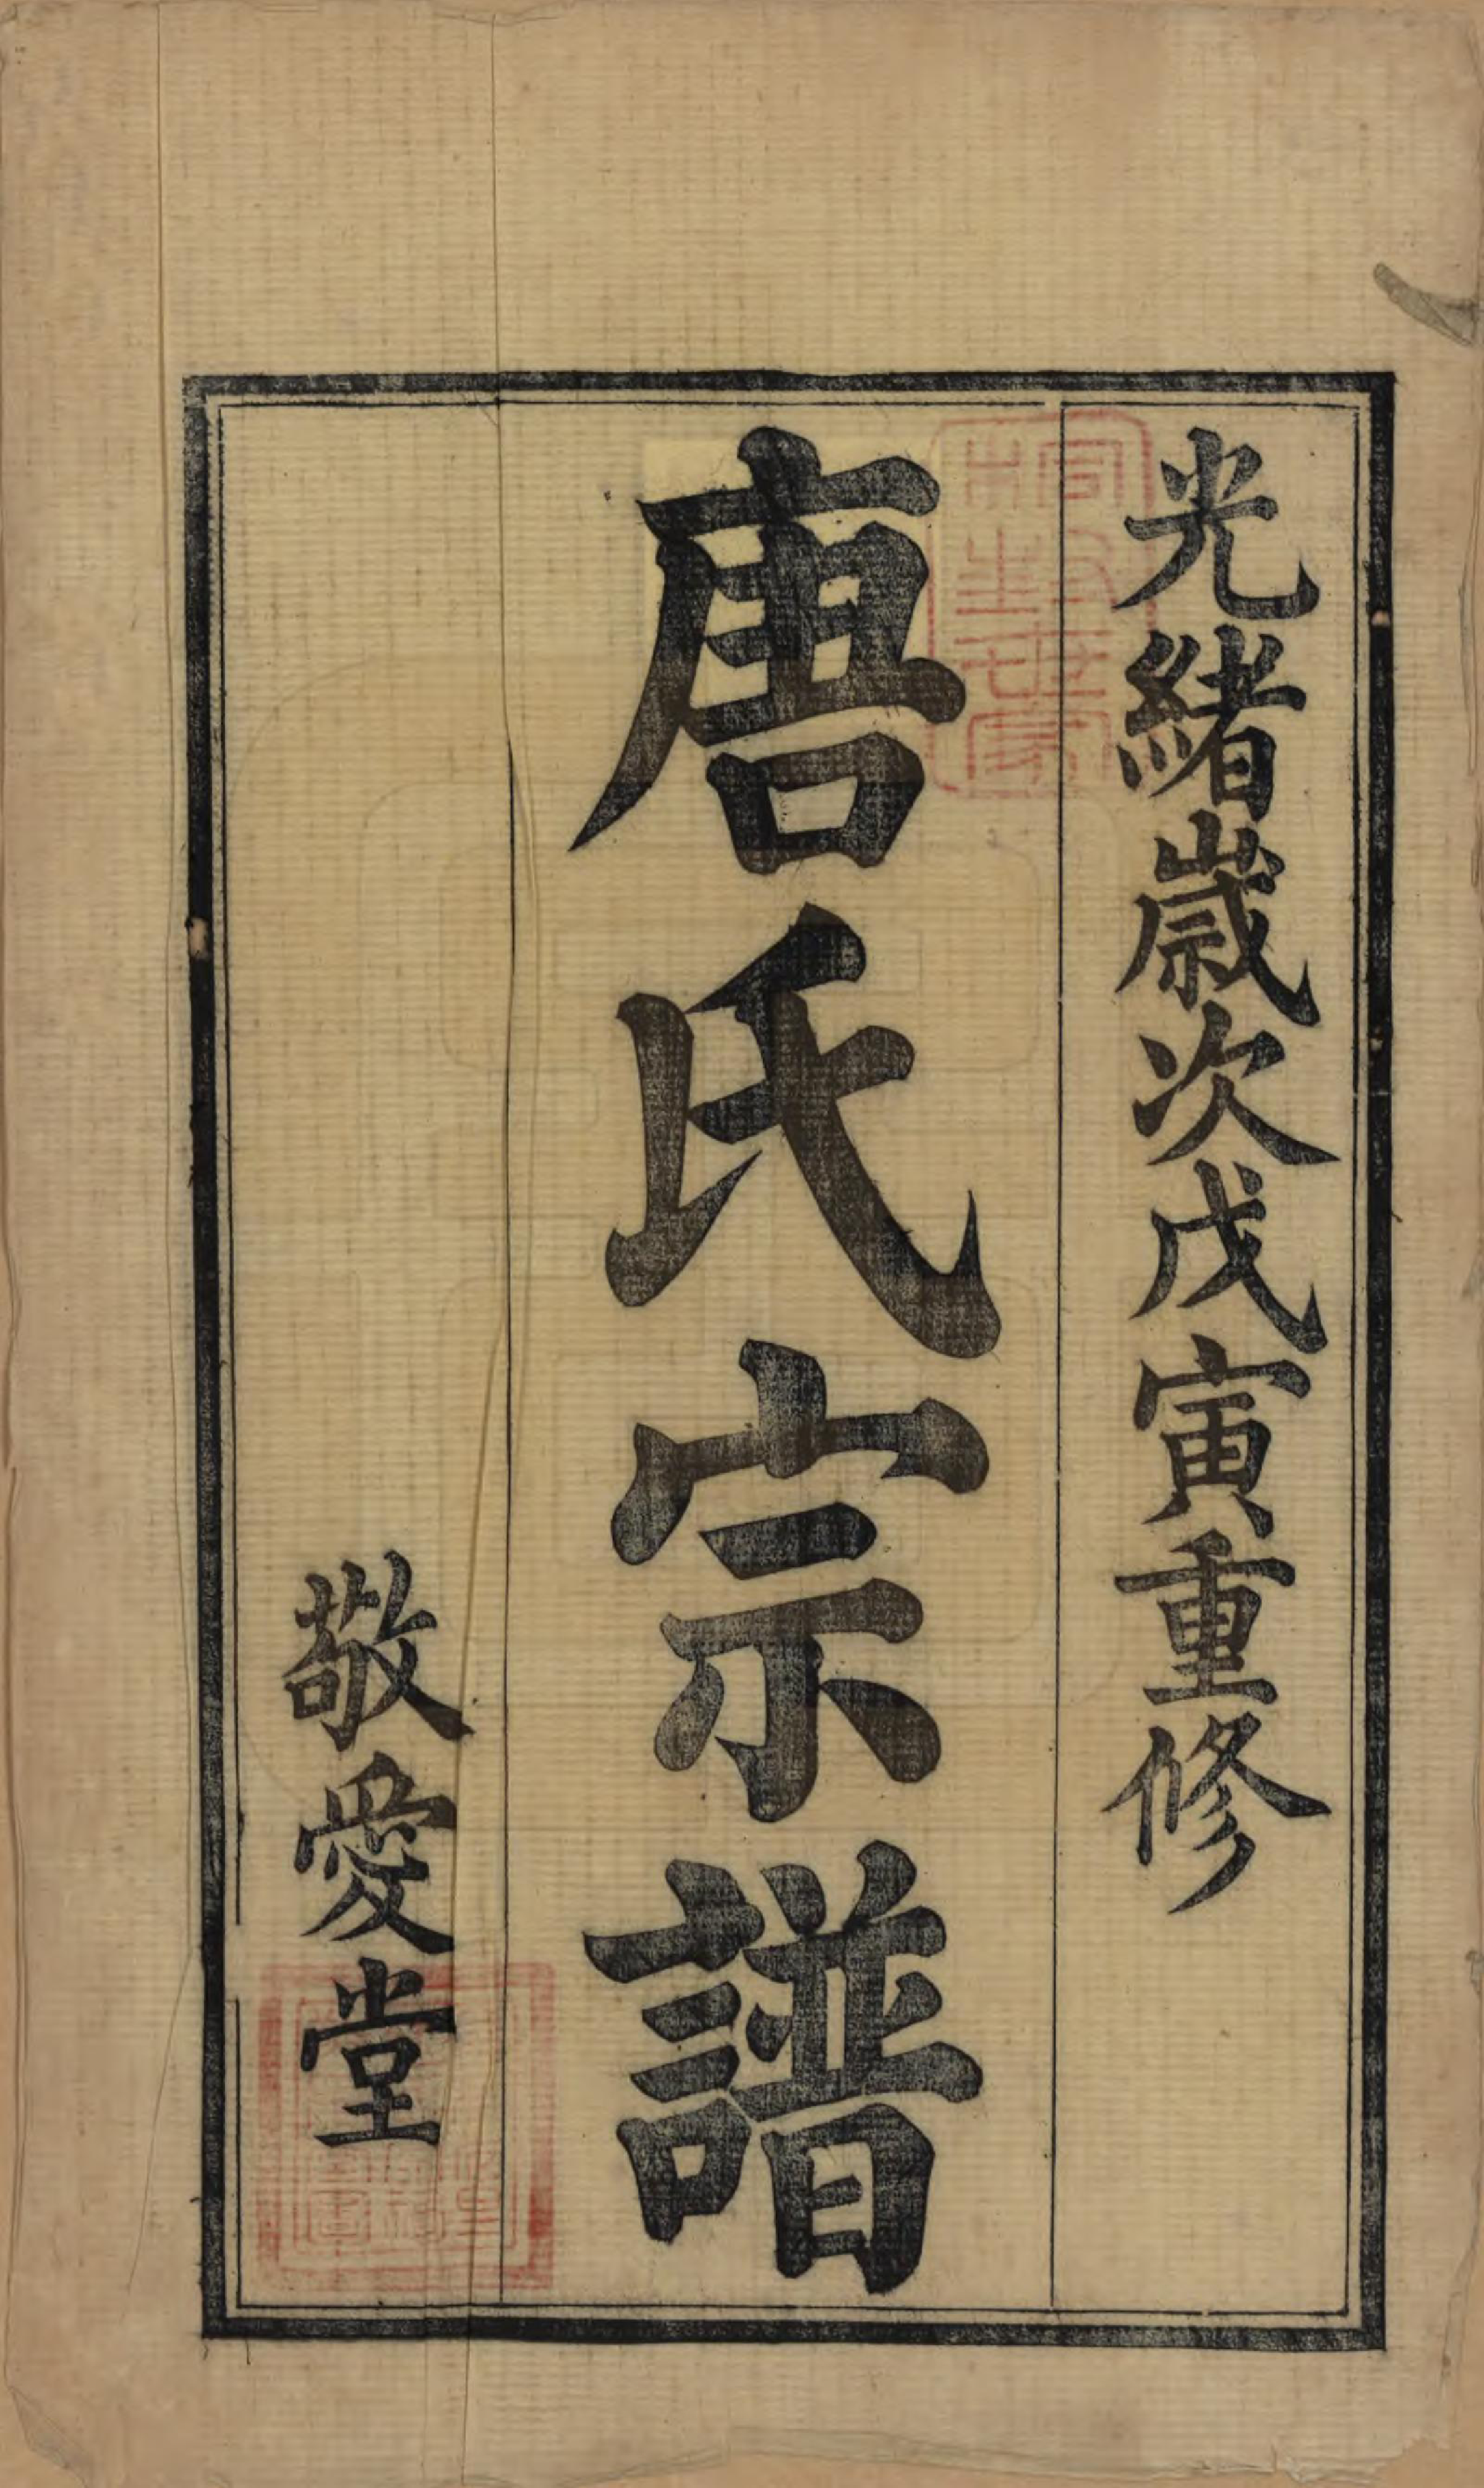 光緒歲次戊寅重修
唐氏宗譜
敬愛堂